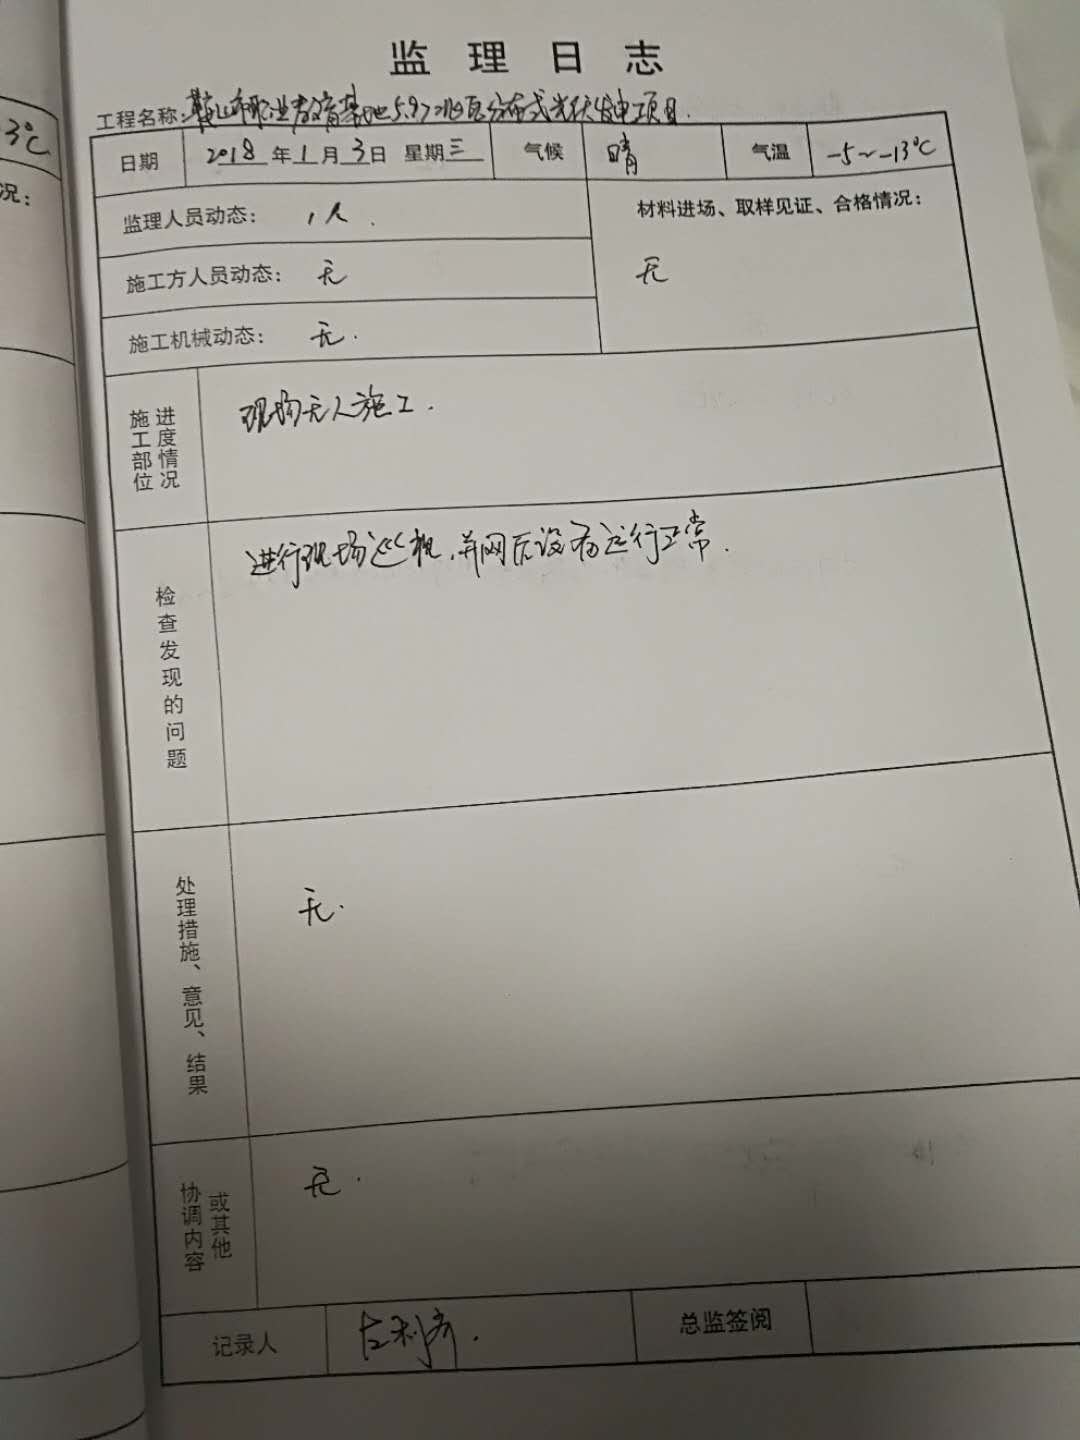 3℃
况：
监理日志
工程名称：鞍山市职业教育基地5.97兆瓦分布式光伏发电项目.
日期 2018年1月3日 星期三 气候 晴 气温 -5～-13℃
监理人员动态： 1人.
材料进场、取样见证、合格情况：
无
施工方人员动态： 无
施工机械动态： 无.
施工部位
进度情况
现场无人施工.
检查发现的问题
进行现场巡视，并网后设备运行正常.
处理措施、意见、结果
无.
协调内容
或其他
无.
记录人
总监签阅